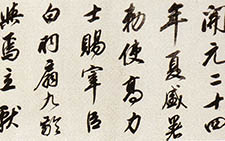 開元二十四
年夏盛暑
勅使高力
士賜宰臣
白羽扇九齡
與焉立獻